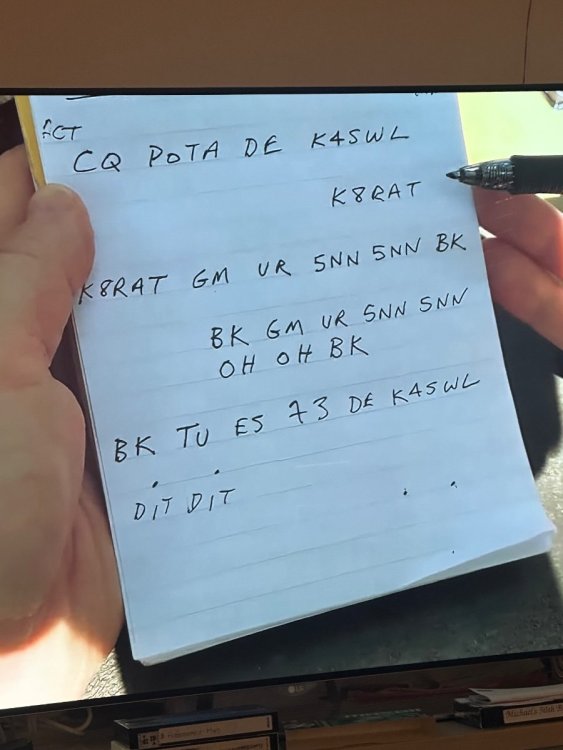 CQ POTA DE K4SWL
K8RAT
K8RAT GM UR 5NN 5NN BK
BK GM UR 5NN 5NN
OH OH BK
BK TU ES 73 DE K4SWL
DIT DIT
LG